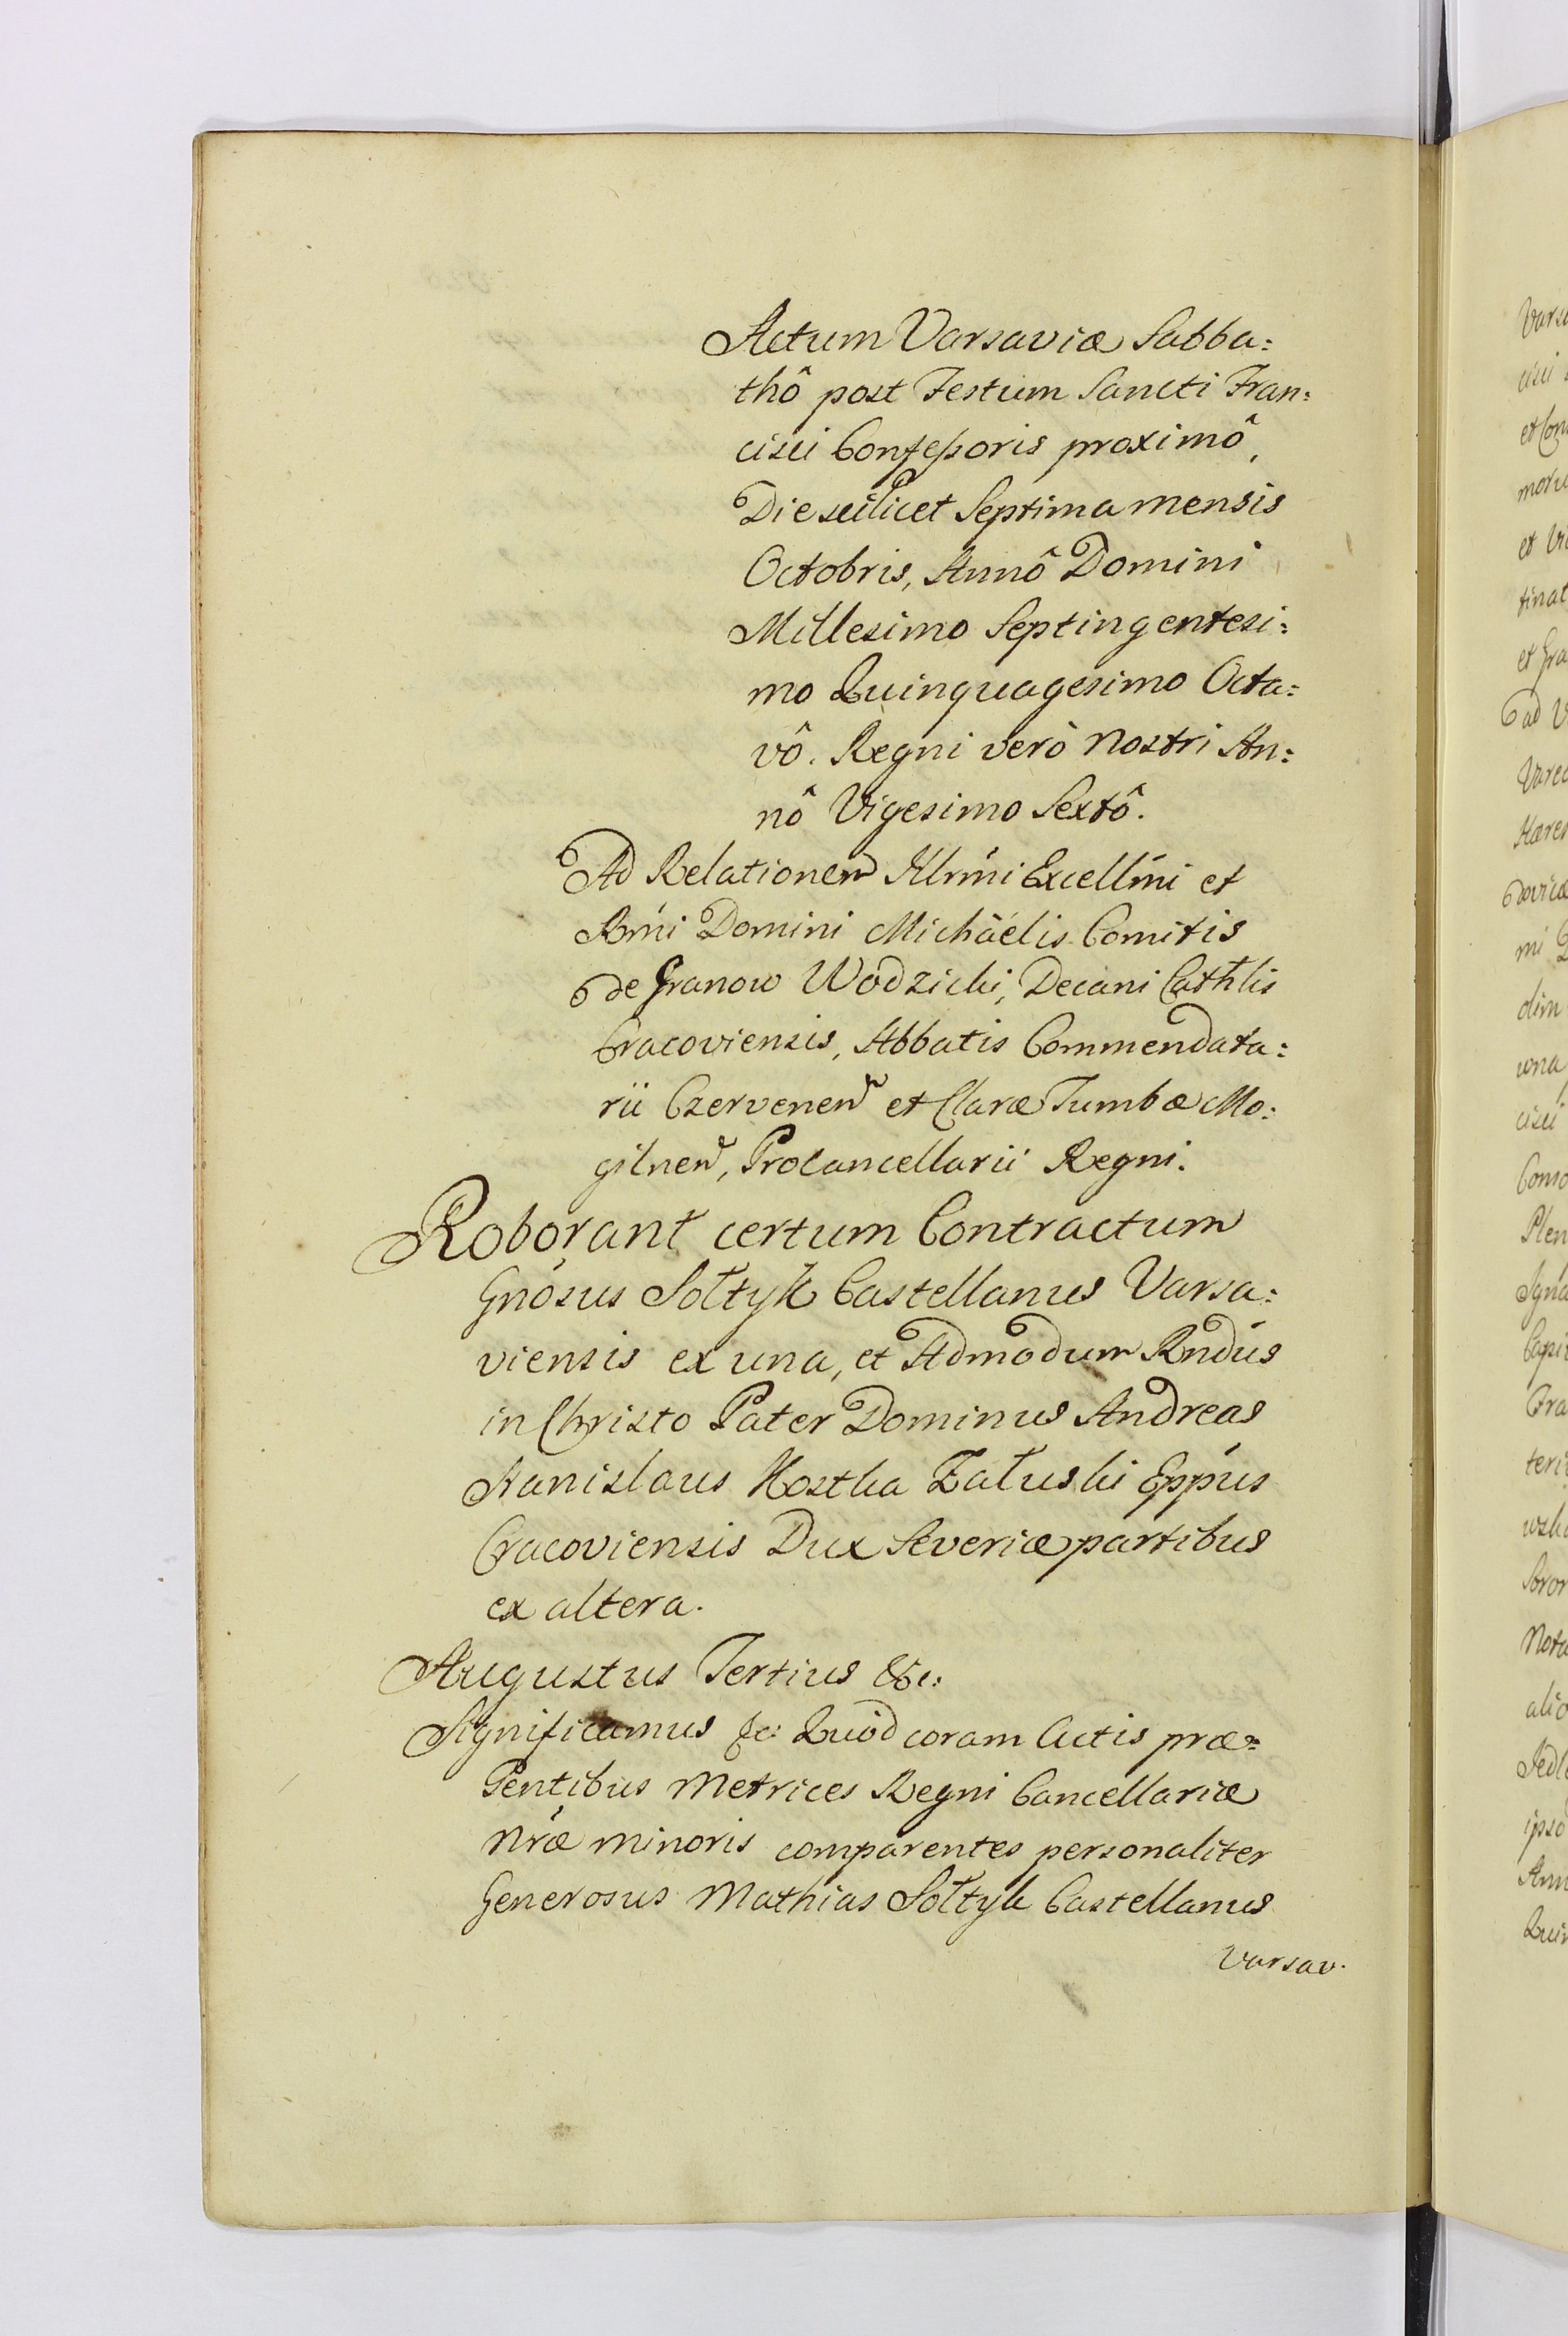 Actum Varsaviæ Sabba:
thô post Festum Sancti Fran:
cisci Confeßoris proximô,
Die scilicet Septima mensis
Octobris, Annô Domini
Millesimo Septingentesi:
mo Quinquagesimo Octa:
vô. Regni verò Nostri An:
nô Vigesimo Sextô.
Ad Relationem Illrmi Excellmi et
Rmi Domini Michaelis Comitis
de Granow Wodzicki, Decani Cathlis
Cracoviensis, Abbatis Commendata:
rii Czervenen et Claræ Tumbæ Mo:
gilnen, Procancellarii Regni.
Roborant certum Contractum
Gnosus Sołtyk Castellanus Varsa:
viensis ex una, et Admodum Rndus
in Christo Pater Dominus Andreas
Stanislaus Kostka Załuski Eppus
Cracoviensis Dux Severiæ partibus
ex altera.
Augustus Tertius &c:
Significamus &c: Quod coram Actis præ=
sentibus Metrices Regni Cancellariæ
Nræ minoris comparentes personaliter
Generosus Mathias Sołtyk Castellanus
Varsav.